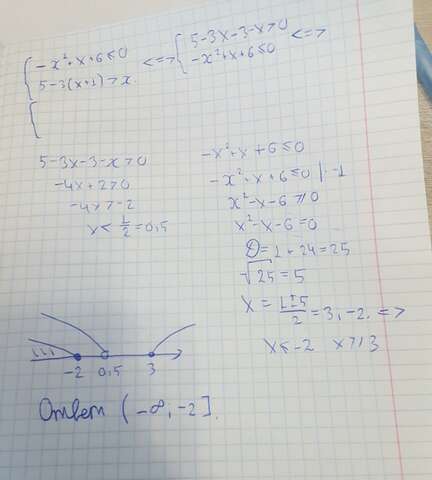 { -x²+x+6≤0
5-3(x+1)>x <=> { 5-3x-3-x>0
-x²+x+6≤0 <=>
5-3x-3-x>0
-4x+2>0
-4x>-2
x<1/2=0,5
-x²+x+6≤0
-x²+x+6≤0 |·-1
x²-x-6≥0
x²-x-6=0
D=1+24=25
√25=5
x=(1±5)/2=3,-2. =>
x≤-2 x≥3
-2 0,5 3
Ответ (-∞,-2].